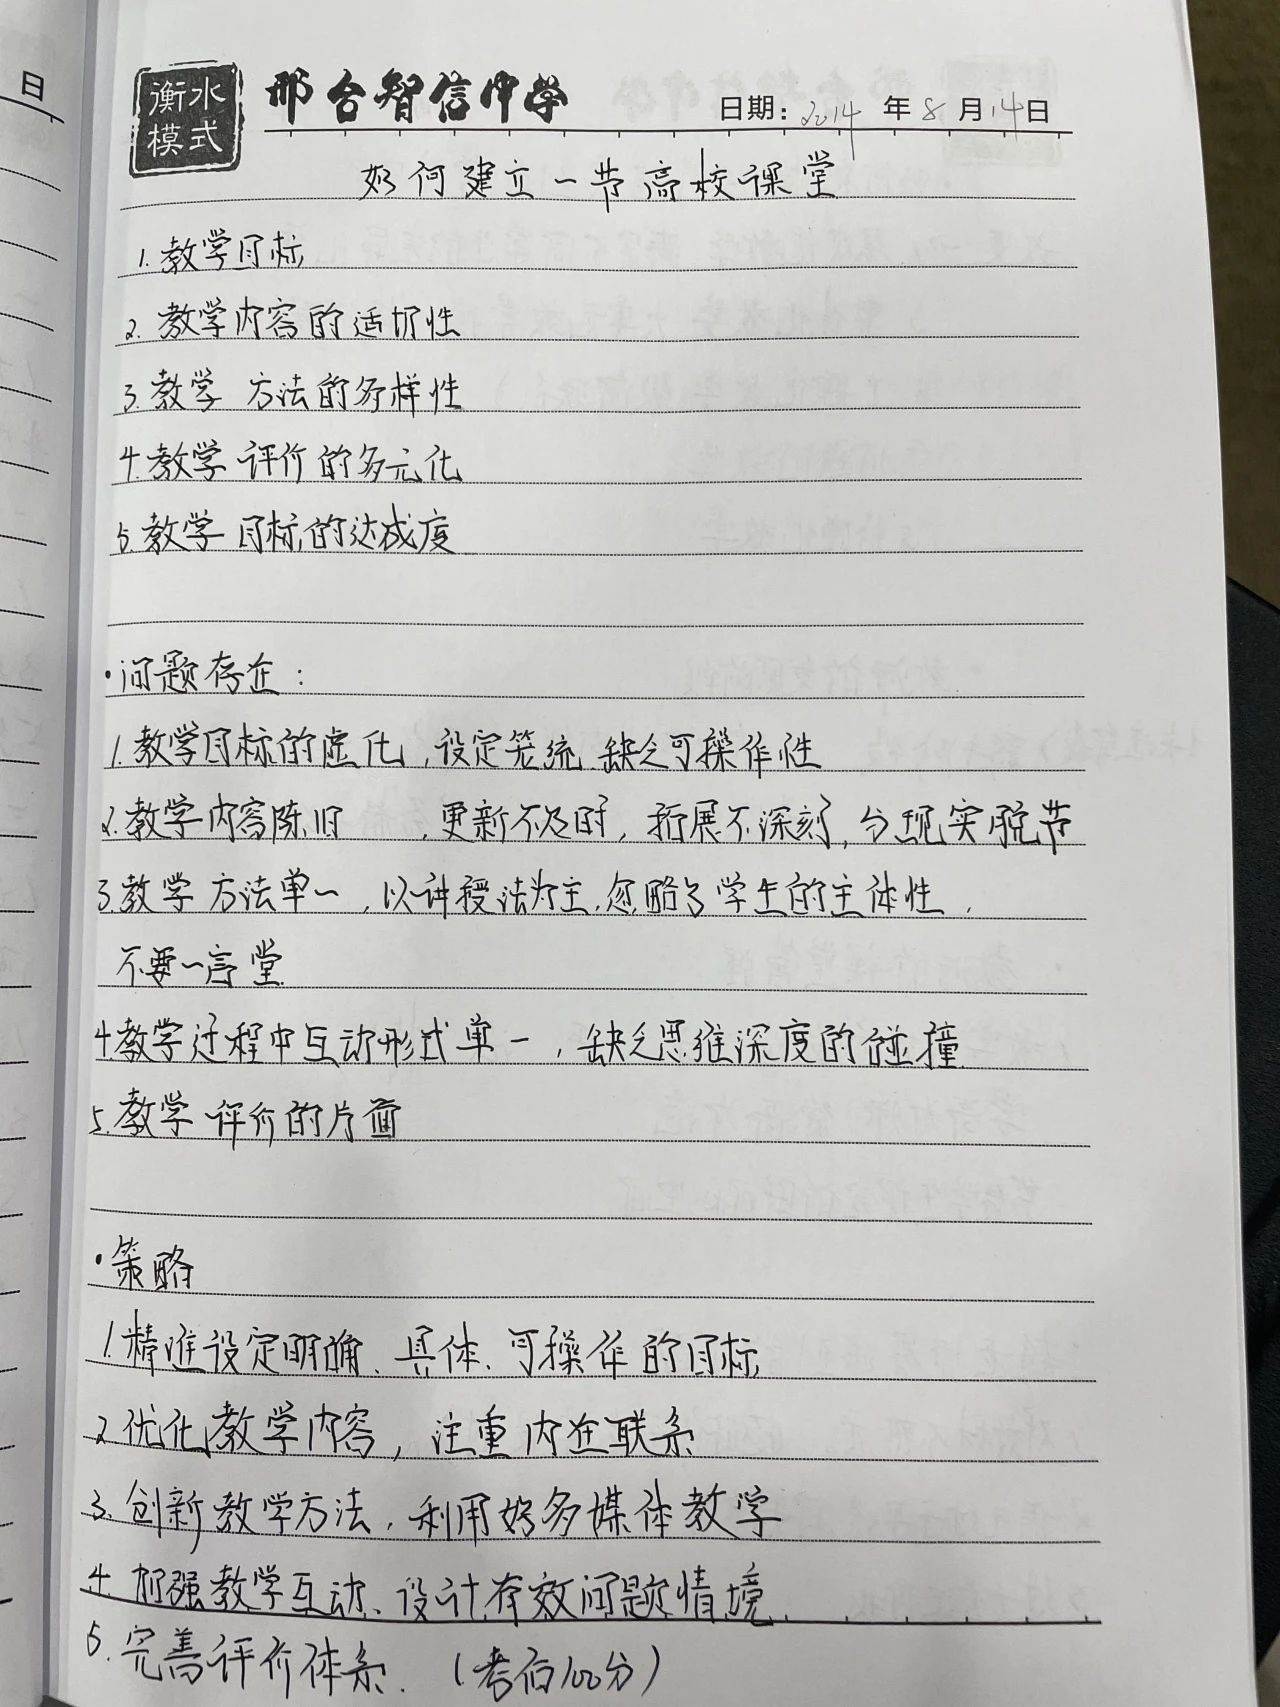 日
衡水
模式
邢台智信中学
日期：2014年8月14日
如何建立一节高校课堂
1.教学目标
2.教学内容的适切性
3.教学方法的多样性
4.教学评价的多元化
5.教学目标的达成度
·问题存在：
1.教学目标的虚化，设定笼统 缺乏可操作性
2.教学内容陈旧，更新不及时，拓展不深刻，与现实脱节
3.教学方法单一，以讲授法为主，忽略了学生的主体性，
不要一言堂.
4教学过程中互动形式单一，缺乏思维深度的碰撞
5.教学评价的片面
·策略
1.精准设定明确、具体、可操作的目标
2优化教学内容，注重内在联系
3.创新教学方法，利用好多媒体教学
4.加强教学互动、设计有效问题情境
5.完善评价体系.（考百100分）